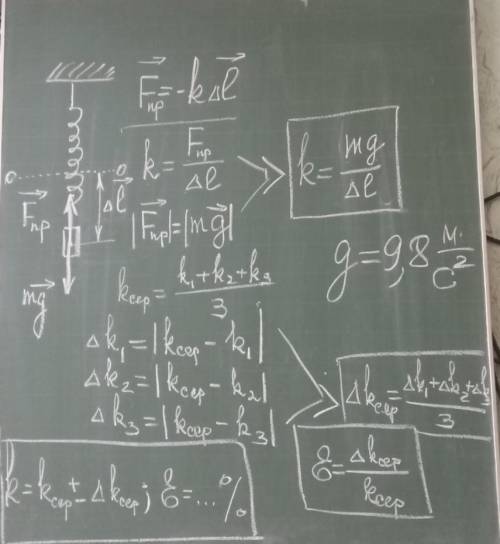 F⃗пр = -kΔl⃗
k = Fпр/Δl
k = mg/Δl
o o
Δl⃗
F⃗пр
|F⃗пр| = |mg⃗|
g = 9,8 м/с²
mg⃗
kсер = (k₁ + k₂ + k₃)/3
Δk₁ = |kсер - k₁|
Δk₂ = |kсер - k₂|
Δk₃ = |kсер - k₃|
Δkсер = (Δk₁ + Δk₂ + Δk₃)/3
ℰ = Δkсер/kсер
k = kсер ± Δkсер; ℰ = ...%